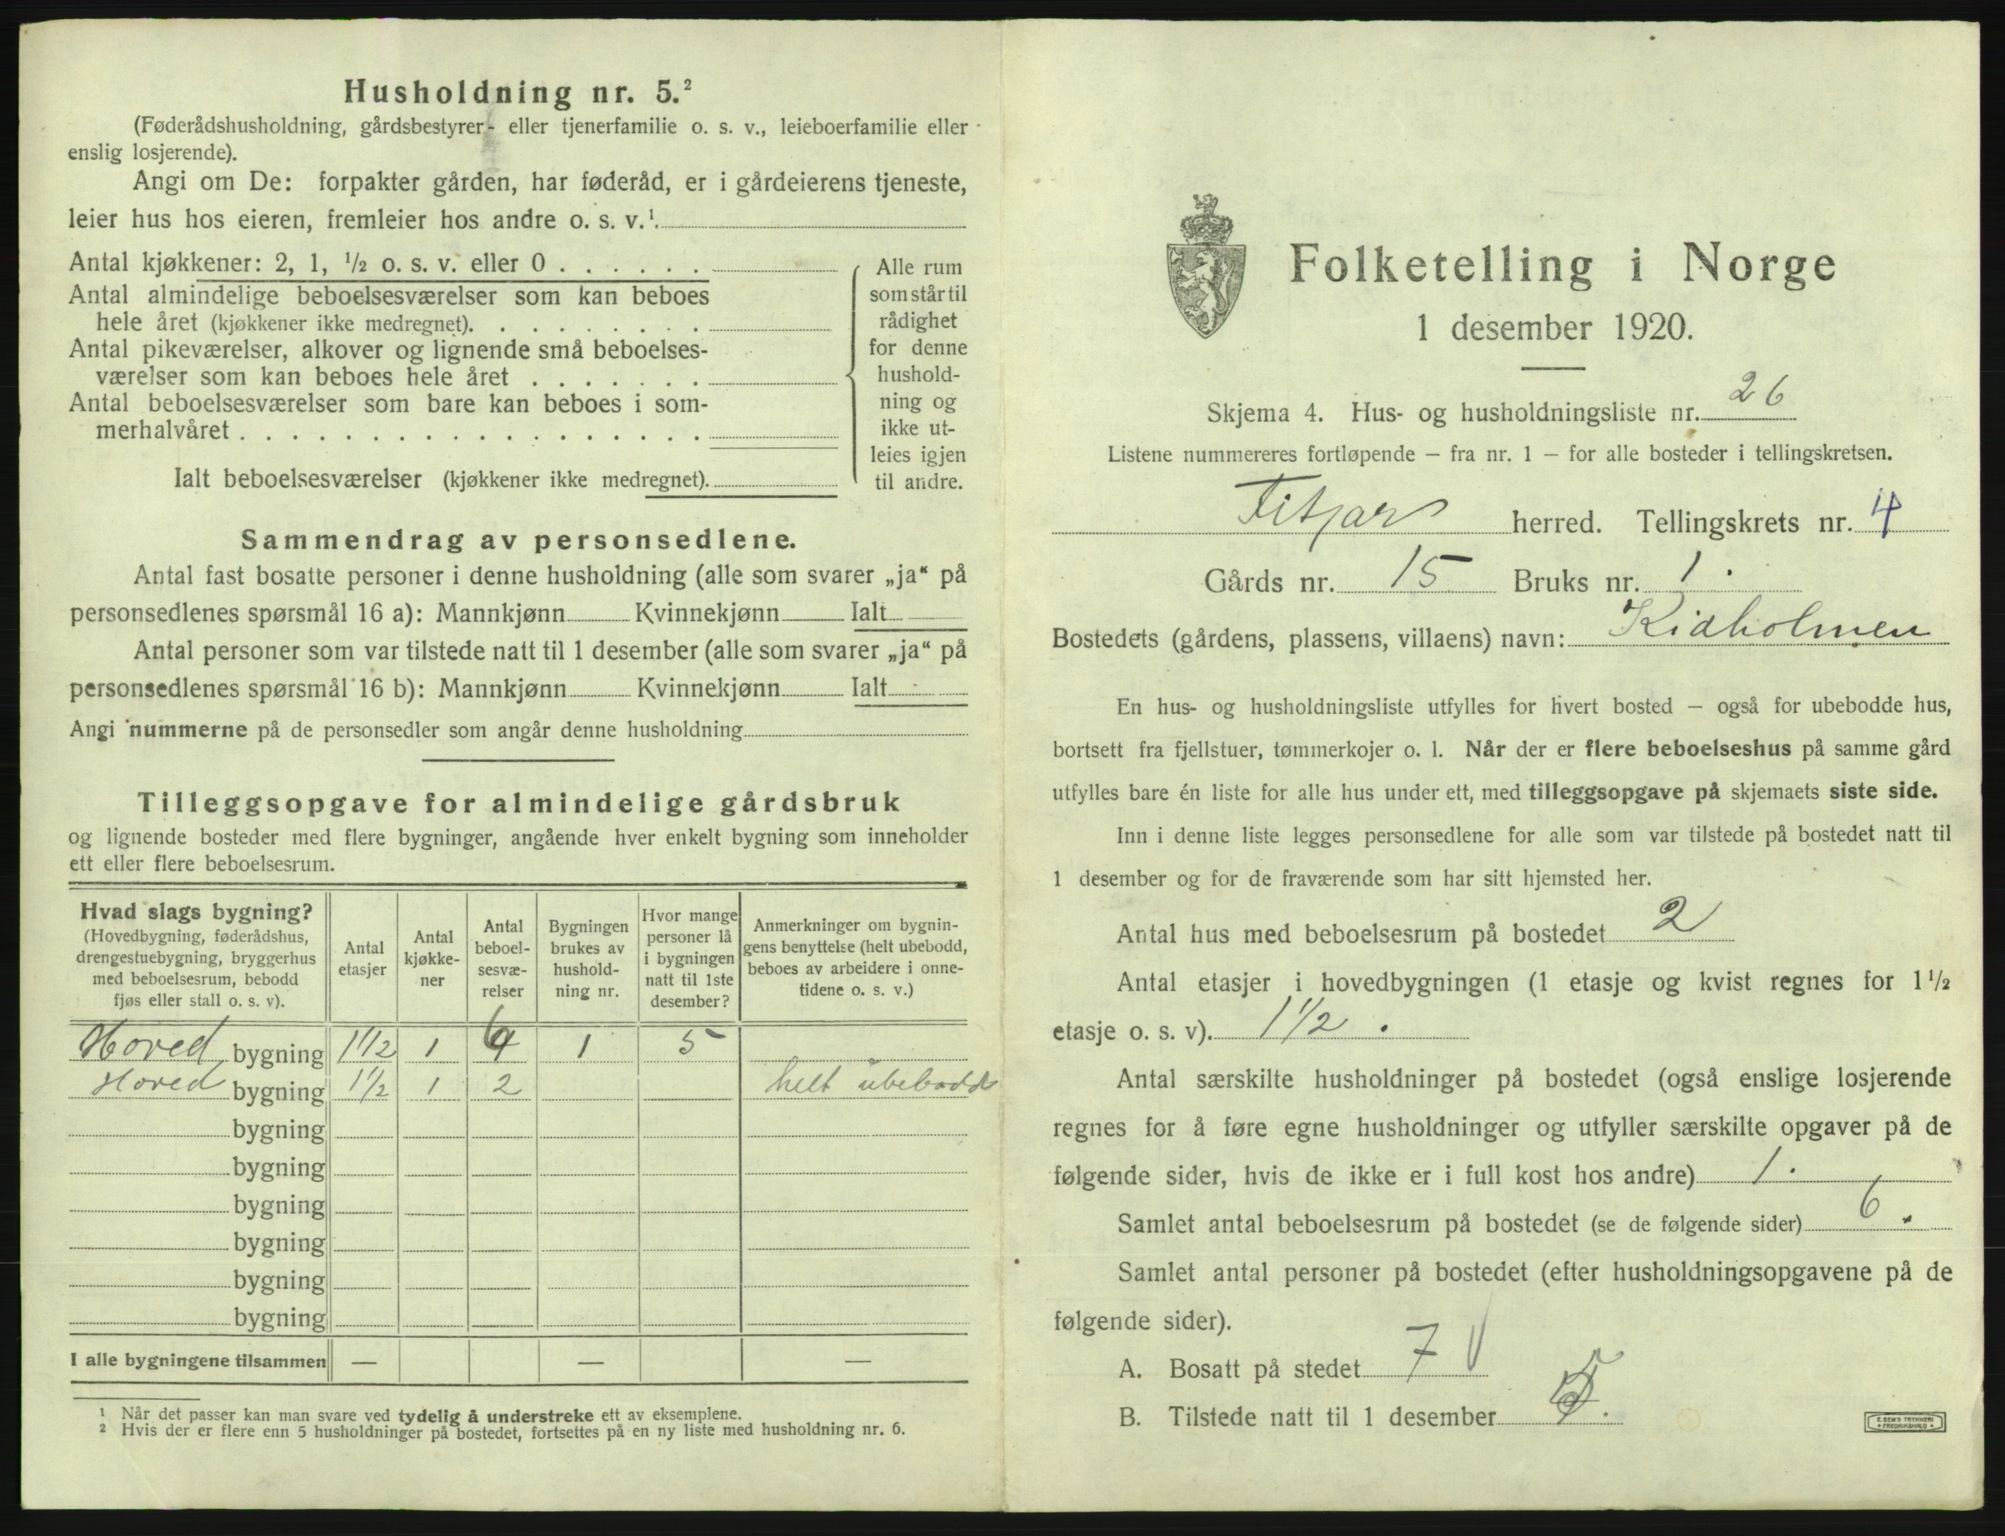 Husholdning nr. 5.²
(Føderådshusholdning, gårdsbestyrer- eller tjenerfamilie o. s. v., leieboerfamilie eller
enslig losjerende).
Angi om De: forpakter gården, har føderåd, er i gårdeierens tjeneste,
leier hus hos eieren, fremleier hos andre o. s. v.¹.
Antal kjøkkener: 2, 1, ½ o. s. v. eller 0 . . . . . .
Antal almindelige beboelsesværelser som kan beboes
hele året (kjøkkener ikke medregnet). . . . . . . . .
Antal pikeværelser, alkover og lignende små beboelses-
værelser som kan beboes hele året . . . . . . .
Antal beboelsesværelser som bare kan beboes i som-
merhalvåret . . . . . . . . . . . . . . . . . .
Ialt beboelsesværelser (kjøkkener ikke medregnet).
Alle rum
som står til
rådighet
for denne
hushold-
ning og
ikke ut-
leies igjen
til andre.
Sammendrag av personsedlene.
Antal fast bosatte personer i denne husholdning (alle som svarer „ja“ på
personsedlenes spørsmål 16 a): Mannkjønn Kvinnekjønn Ialt
Antal personer som var tilstede natt til 1 desember (alle som svarer „ja“ på
personsedlenes spørsmål 16 b): Mannkjønn Kvinnekjønn Ialt
Angi nummerne på de personsedler som angår denne husholdning
Tilleggsopgave for almindelige gårdsbruk
og lignende bosteder med flere bygninger, angående hver enkelt bygning som inneholder
ett eller flere beboelsesrum.
Hvad slags bygning?
(Hovedbygning, føderådshus,
drengestuebygning, bryggerhus
med beboelsesrum, bebodd
fjøs eller stall o. s. v).
Antal
etasjer
Antal
kjøkke-
ner
Antal
beboel-
sesvæ-
relser
Bygningen
brukes av
hushold-
ning nr.
Hvor mange
personer lå
i bygningen
natt til 1ste
desember?
Anmerkninger om bygnin-
gens benyttelse (helt ubebodd,
beboes av arbeidere i onne-
tidene o. s. v.)
Hoved bygning 1 1/2 1 1 5
Hoved bygning 1 1/2 1 2 helt ubebodd
bygning
bygning
bygning
bygning
bygning
bygning
I alle bygningene tilsammen — — —
¹ Når det passer kan man svare ved tydelig å understreke ett av eksemplene.
² Hvis der er flere enn 5 husholdninger på bostedet, fortsettes på en ny liste med husholdning nr. 6.
Folketelling i Norge
1 desember 1920.
Skjema 4. Hus- og husholdningsliste nr. 26
Listene nummereres fortløpende – fra nr. 1 – for alle bosteder i tellingskretsen.
Fitjar herred. Tellingskrets nr. 4
Gårds nr. 15 Bruks nr. 1.
Bostedets (gårdens, plassens, villaens) navn: Kidholmen
En hus- og husholdningsliste utfylles for hvert bosted – også for ubebodde hus,
bortsett fra fjellstuer, tømmerkojer o. l. Når der er flere beboelseshus på samme gård
utfylles bare én liste for alle hus under ett, med tilleggsopgave på skjemaets siste side.
Inn i denne liste legges personsedlene for alle som var tilstede på bostedet natt til
1 desember og for de fraværende som har sitt hjemsted her.
Antal hus med beboelsesrum på bostedet 2
Antal etasjer i hovedbygningen (1 etasje og kvist regnes for 1 ½
etasje o. s. v). 1 1/2.
Antal særskilte husholdninger på bostedet (også enslige losjerende
regnes for å føre egne husholdninger og utfyller særskilte opgaver på de
følgende sider, hvis de ikke er i full kost hos andre) 1.
Samlet antal beboelsesrum på bostedet (se de følgende sider) 6.
Samlet antal personer på bostedet (efter husholdningsopgavene på de
følgende sider).
A. Bosatt på stedet 7
B. Tilstede natt til 1 desember
E. SEM'S TRYKKERI
FREDRIKSHALD